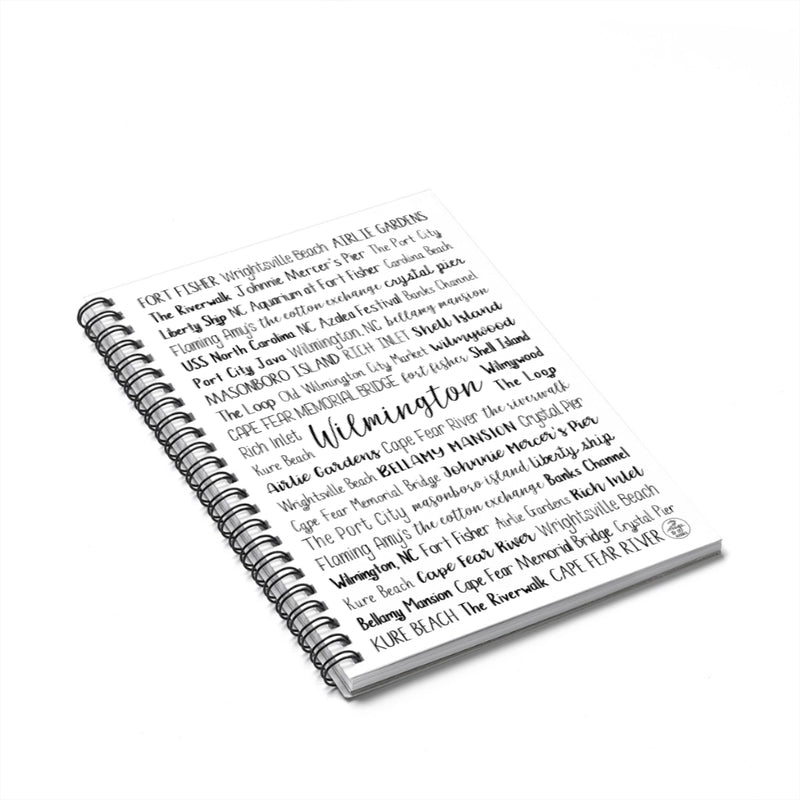 FORT FISHER Wrightsville Beach AIRLIE GARDENS
The Riverwalk Johnnie Mercer's Pier The Port City
Liberty Ship NC Aquarium at Fort Fisher Carolina Beach
Flaming Amy's the cotton exchange crystal pier
USS North Carolina NC Azalea Festival Banks Channel
Port City Java Wilmington, NC bellamy mansion
MASONBORO ISLAND RICH INLET Shell Island
The Loop Old Wilmington City Market Wilmywood
CAPE FEAR MEMORIAL BRIDGE fort fisher Shell Island
Rich Inlet Wilmington Wilmywood
Kure Beach The Loop
Airlie Gardens Cape Fear River the riverwalk
Wrightsville Beach BELLAMY MANSION Crystal Pier
Cape Fear Memorial Bridge Johnnie Mercer's Pier
The Port City masonboro island liberty ship
Flaming Amy's the cotton exchange Banks Channel
Wilmington, NC Fort Fisher Airlie Gardens Rich Inlet
Kure Beach Cape Fear River Wrightsville Beach
Bellamy Mansion Cape Fear Memorial Bridge Crystal Pier
KURE BEACH The Riverwalk CAPE FEAR RIVER